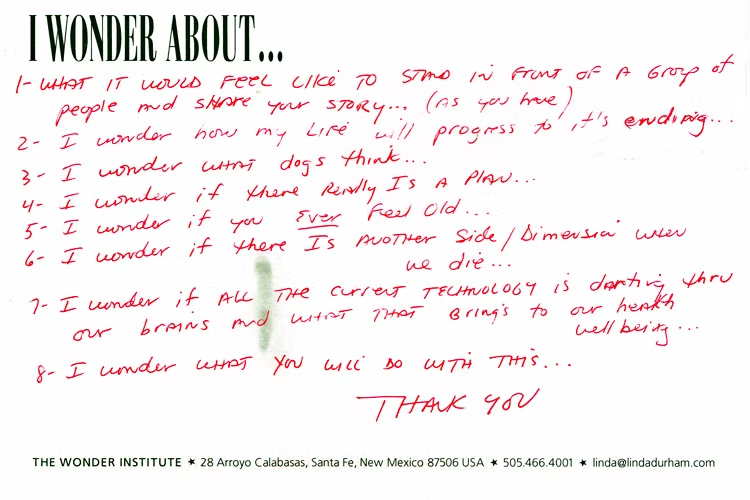 I WONDER ABOUT...
1- WHAT IT WOULD FEEL LIKE TO STAND IN FRONT OF A GROUP OF
people and SHARE your STORY... (AS you have)
2- I wonder how my LIFE will progress to it's ending...
3- I wonder WHAT dogs think...
4- I wonder if there REALLY IS A PLAN...
5- I wonder if you EVER FEEL OLD...
6- I wonder if there IS ANOTHER Side/Dimension WHEN
we die...
7- I wonder if ALL THE CURRENT TECHNOLOGY is darting thru
our brains AND WHAT THAT Brings to our health
well being...
8- I wonder WHAT YOU WILL DO WITH THIS...
THANK YOU
THE WONDER INSTITUTE ★ 28 Arroyo Calabasas, Santa Fe, New Mexico 87506 USA ★ 505.466.4001 ★ linda@lindadurham.com